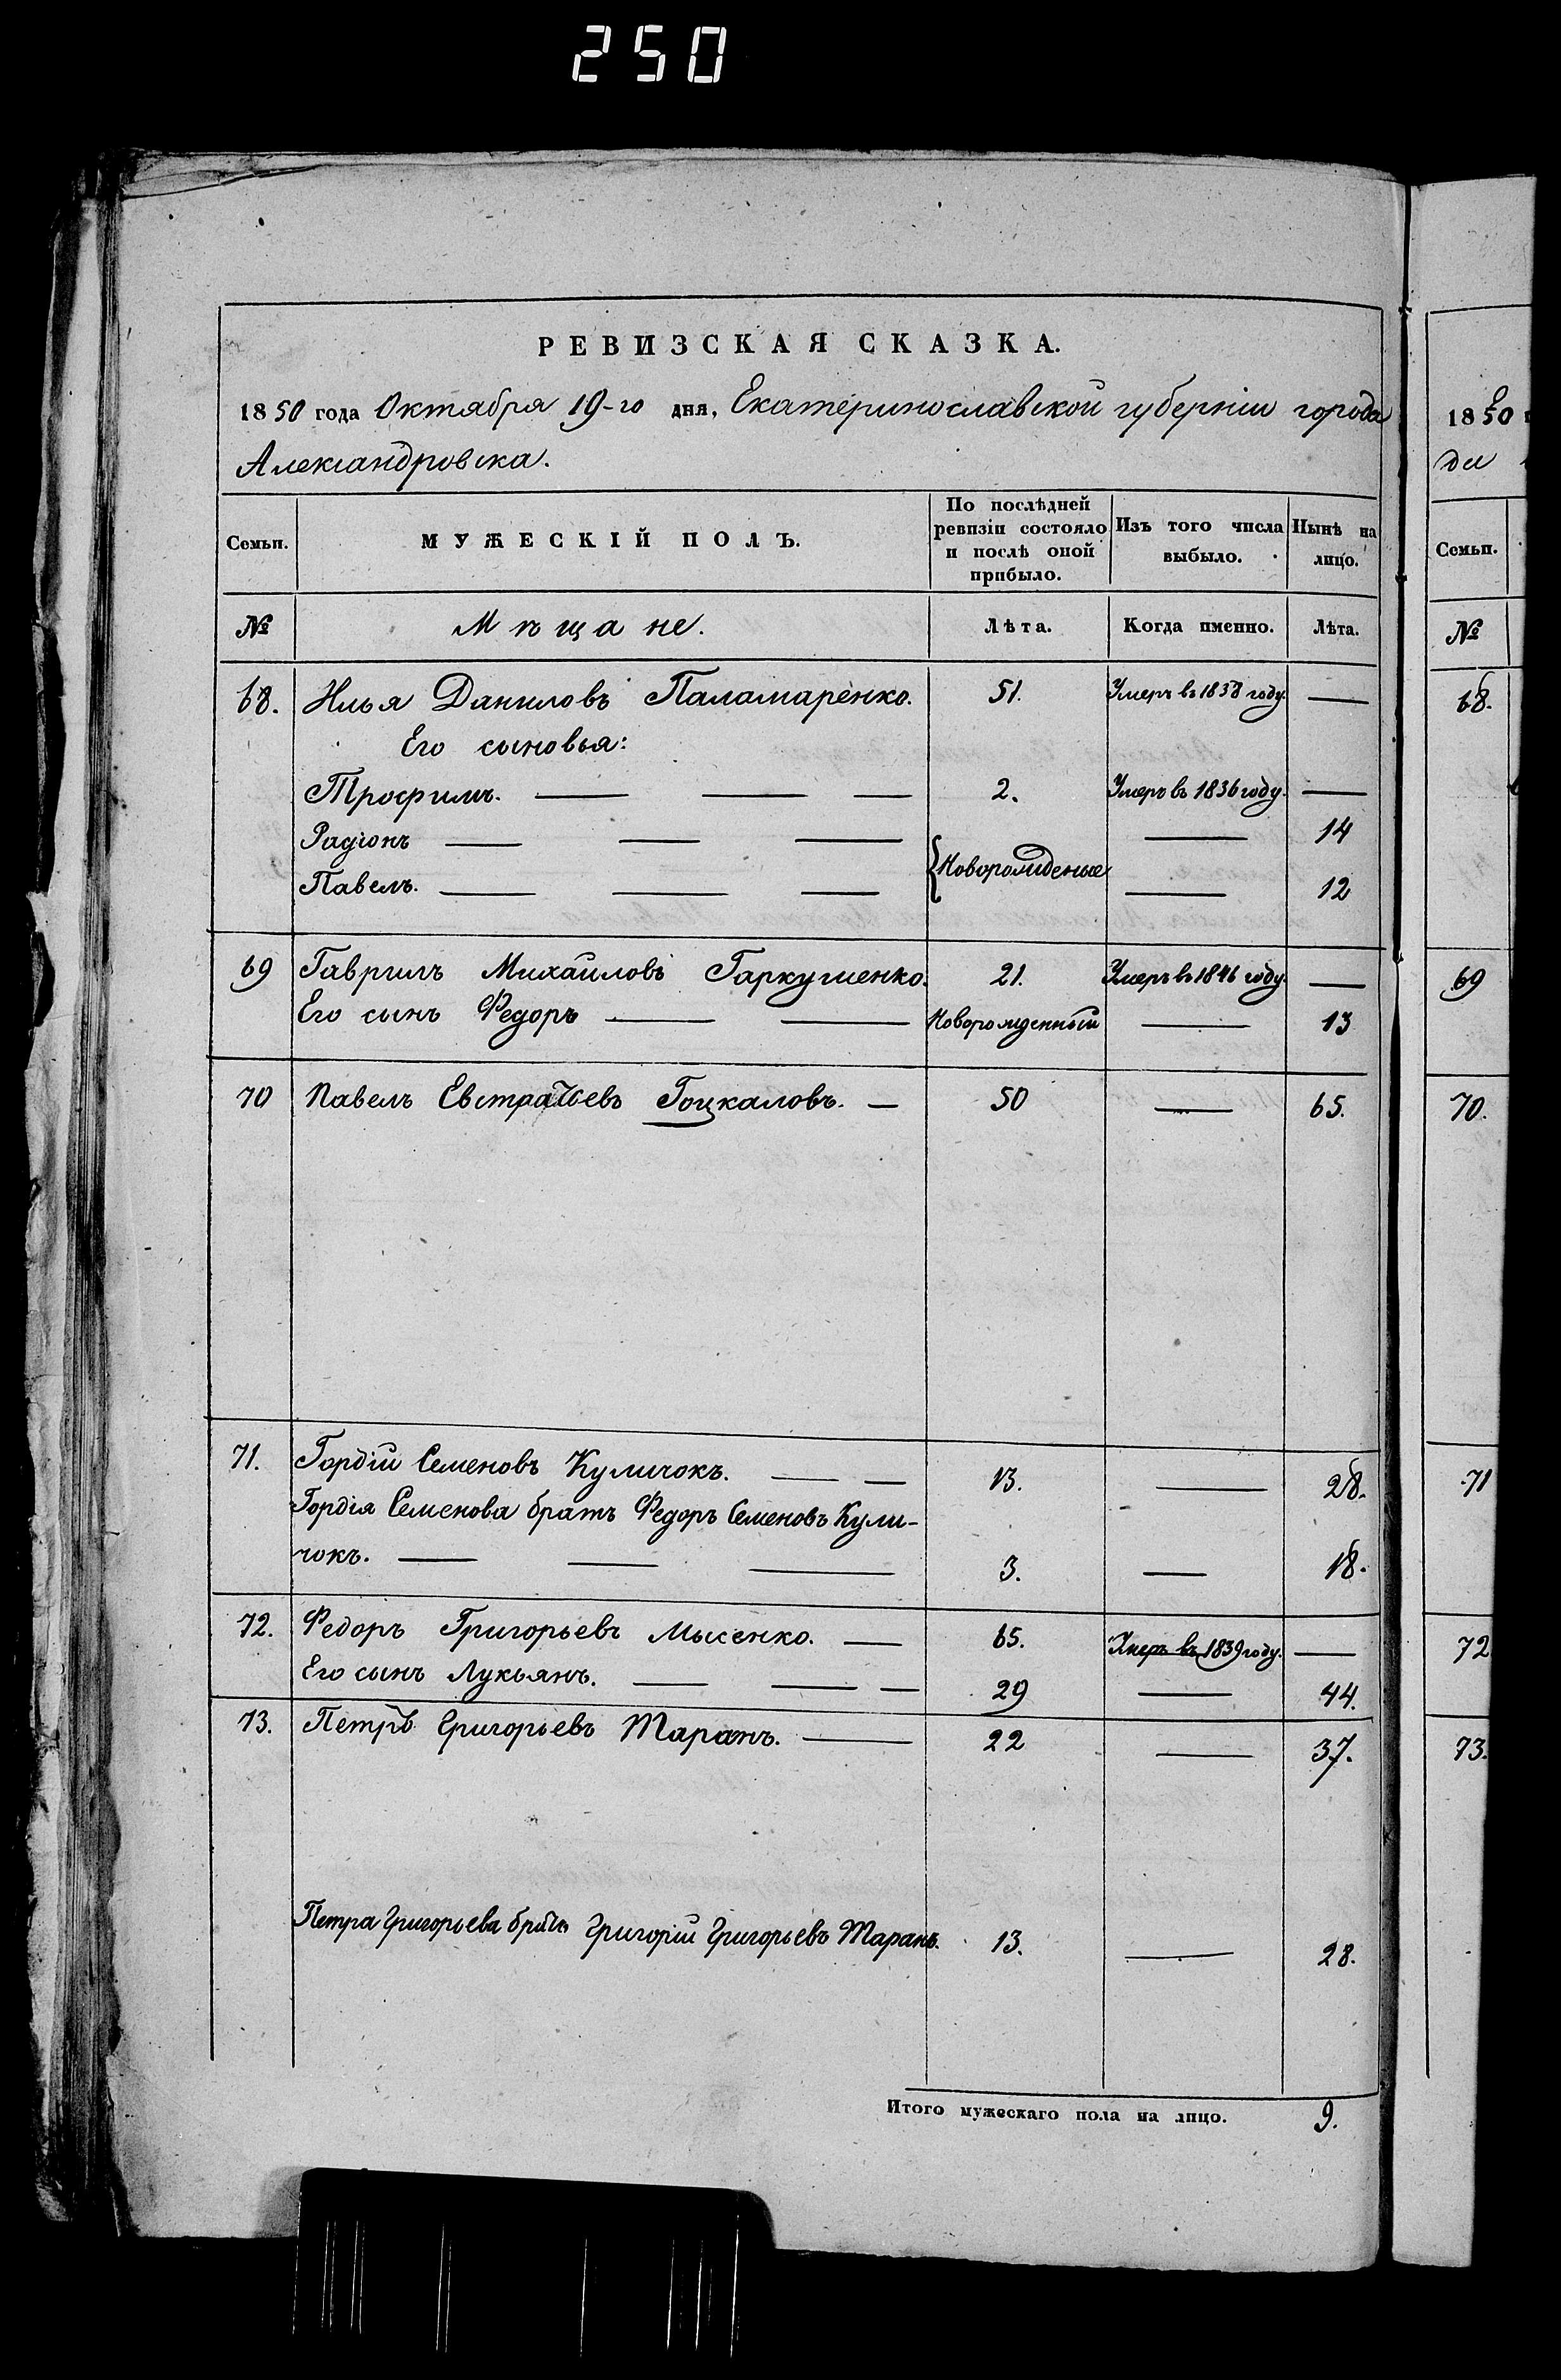 250
РЕВИЗСКАЯ СКАЗКА.
1850 года Октября 19-го дня, Екатеринославской губерніи города
Александровска.
Семьи. МУЖЕСКІЙ ПОЛЪ. По послѣдней ревизіи состояло и послѣ оной прибыло. Изъ того числа выбыло. Нынѣ на лицо.
№ Мѣщане. Лѣта. Когда именно. Лѣта.
68. Илья Даниловъ Паламаренко. 51. Умеръ въ 1838 году. —
Его сыновья:
Трофимъ. — — — 2. Умеръ въ 1836 году. —
Радіонъ — — — Новорожденые — 14
Павелъ. — — — — 12
69 Гаврилъ Михайловъ Гаркушенко. 21. Умеръ въ 1846 году. —
Его сынъ Федоръ — — Новорожденный — 13
70 Павелъ Евстратьевъ Гоцкаловъ. — 50 — 65.
71. Гордій Семеновъ Куличокъ. — — 13. — 28.
Гордія Семенова братъ Федоръ Семеновъ Кули-
чокъ. — — — 3. — 18.
72. Федоръ Григорьевъ Мысенко. — 65. Умеръ въ 1839 году. —
Его сынъ Лукьянъ. — — — 29 — 44.
73. Петръ Григорьевъ Таранъ. — 22 — 37.
Петра Григорьева братъ Григорій Григорьевъ Таранъ. 13. — 28.
Итого мужескаго пола на лицо. 9.
1850
да
Семьи.
№
68.
69
70.
71
72
73.